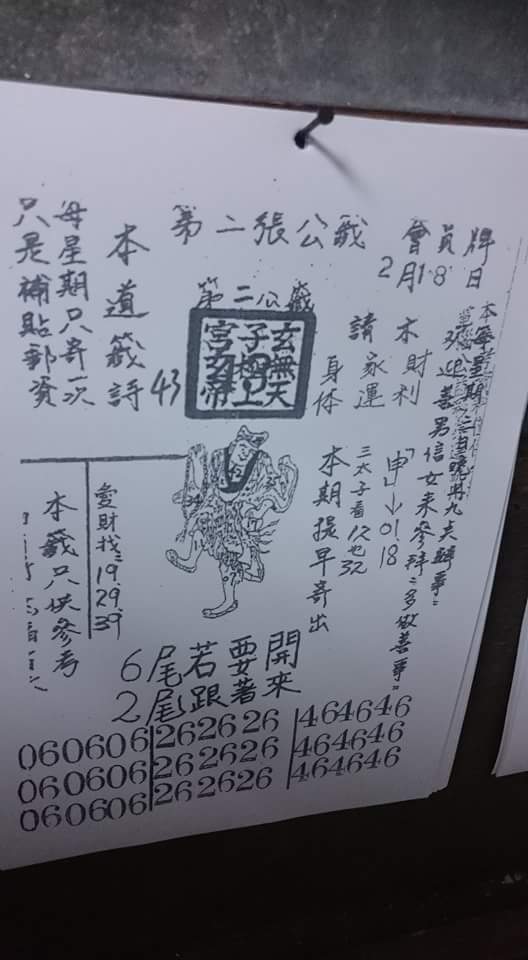 牌日
會員
2月18
第二張公籤
第二公籤
玄無天
子極上
宮玄帝
本道籤詩
43
每星期只寄一次
只是補貼郵資
歡迎善男信女來參拜多做善事
木財利
請家運
身体
「申」→01.18
三太子看 12也32
本期提早寄出
愛財找:
19.
29.
39
本籤只供參考
6尾若要開
2尾跟著來
060606 262626 464646
060606 262626 464646
060606 262626 464646